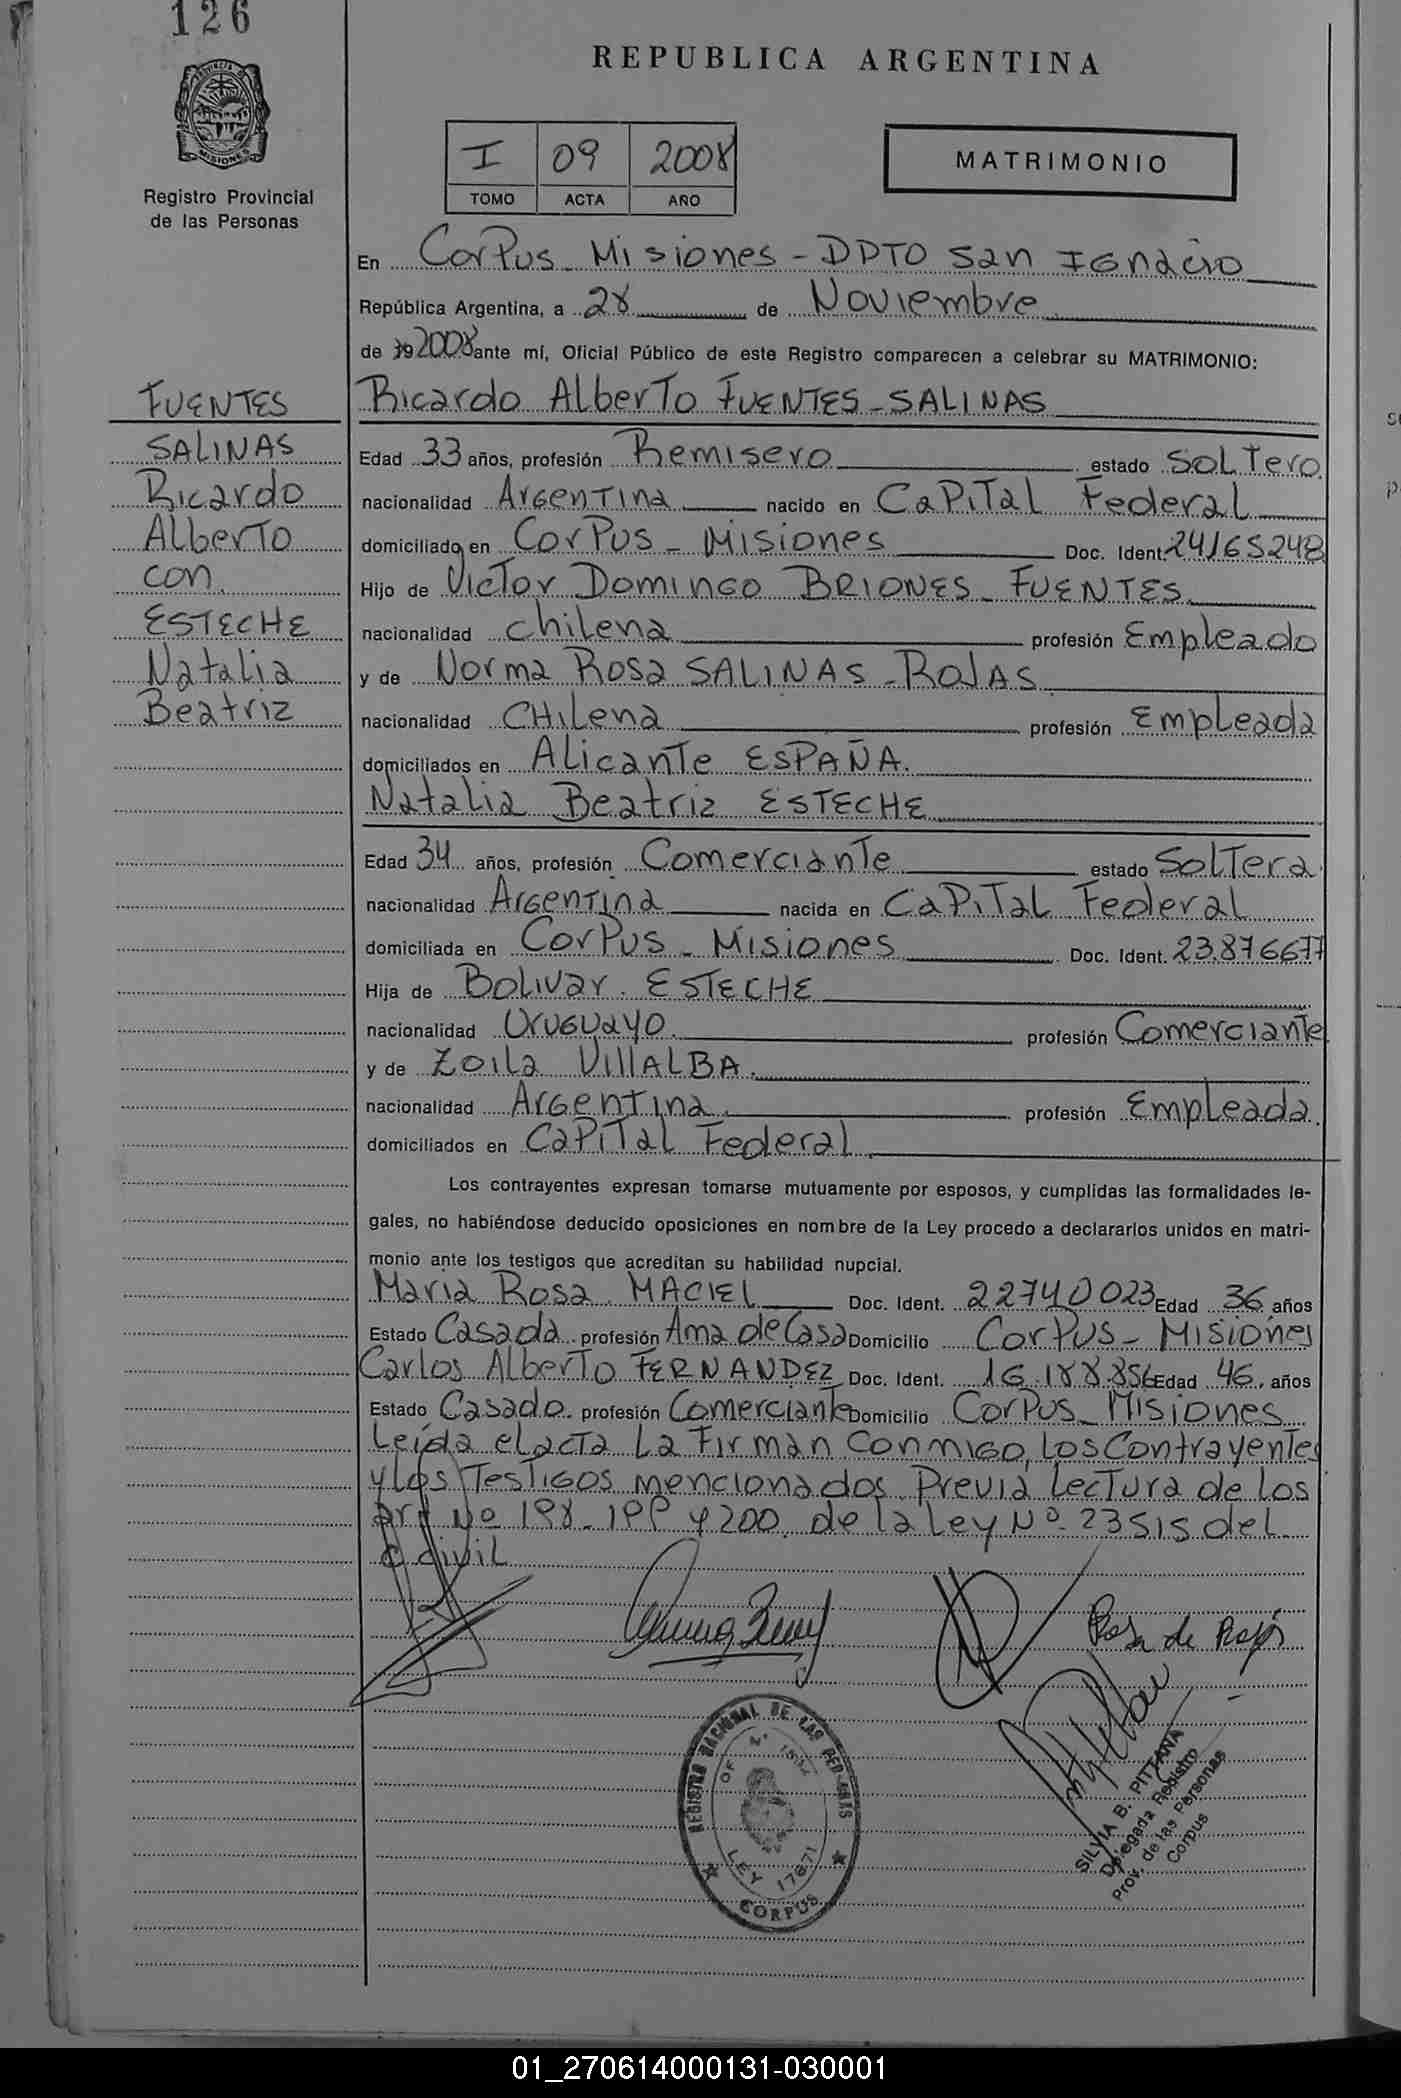 126
REPUBLICA ARGENTINA
PROVINCIA DE
MISIONES
Registro Provincial
de las Personas
I 09 2008
TOMO ACTA AÑO
MATRIMONIO
En Corpus Misiones - DPTO San Ignacio
República Argentina, a 28 de Noviembre
de 19 2008 ante mí, Oficial Público de este Registro comparecen a celebrar su MATRIMONIO:
FUENTES
SALINAS
Ricardo
Alberto
con
ESTECHE
Natalia
Beatriz
Ricardo Alberto FUENTES - SALINAS
Edad 33 años, profesión Remisero estado SOLTero
nacionalidad Argentina nacido en CaPiTal Federal
domiciliado en Corpus - Misiones Doc. Ident. 24165248
Hijo de Victor Domingo BRIONES - FUENTES
nacionalidad chilena profesión Empleado
y de Norma Rosa SALINAS - ROJAS
nacionalidad CHilena profesión Empleada
domiciliados en Alicante ESPAÑA.
Natalia Beatriz ESTECHE
Edad 34 años, profesión Comerciante estado SolTera
nacionalidad Argentina nacida en CaPiTal Federal
domiciliada en Corpus - Misiones Doc. Ident. 23.876677
Hija de Bolivar ESTECHE
nacionalidad Uruguayo profesión Comerciante
y de Zoila VillALBA.
nacionalidad Argentina profesión Empleada
domiciliados en CaPiTal Federal
Los contrayentes expresan tomarse mutuamente por esposos, y cumplidas las formalidades le-
gales, no habiéndose deducido oposiciones en nombre de la Ley procedo a declararlos unidos en matri-
monio ante los testigos que acreditan su habilidad nupcial.
Maria Rosa MACIEL Doc. Ident. 22740023 Edad 36 años
Estado Casada profesión Ama de Casa Domicilio Corpus - Misiones
Carlos Alberto FERNANDEZ Doc. Ident. 16.188.856 Edad 46 años
Estado Casado profesión Comerciante Domicilio Corpus - Misiones
Leida el acta La Firman conmigo, Los Contrayentes
y Los Testigos mencionados Previa Lectura de Los
art Nº 198 - 199 y 200 de la Ley Nº 23515 del
C civil
Rosa de Rojas
REGISTRO NACIONAL DE LAS PERSONAS
OF. Nº 1552
LEY 17671
CORPUS
SILVIA B. PITTANA
Delegada Registro
Prov. de las Personas
Corpus
01_270614000131-030001